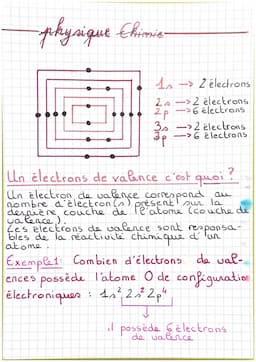 physique Chimie
1s → 2 électrons
2s → 2 électrons
2p → 6 électrons
3s → 2 électrons
3p → 6 électrons
Un électrons de valence c'est quoi ?
Un électron de valence correspond au
nombre d'électron(s) présent sur la
dernière couche de l'atome (couche de
valence).
Les électrons de valence sont responsa-
bles de la réactivité chimique d'un
atome.
Exemple 1: Combien d'électrons de val-
ences possède l'atome O de configuration
électroniques : 1s² 2s² 2p⁴
il possède 6 électrons
de valence